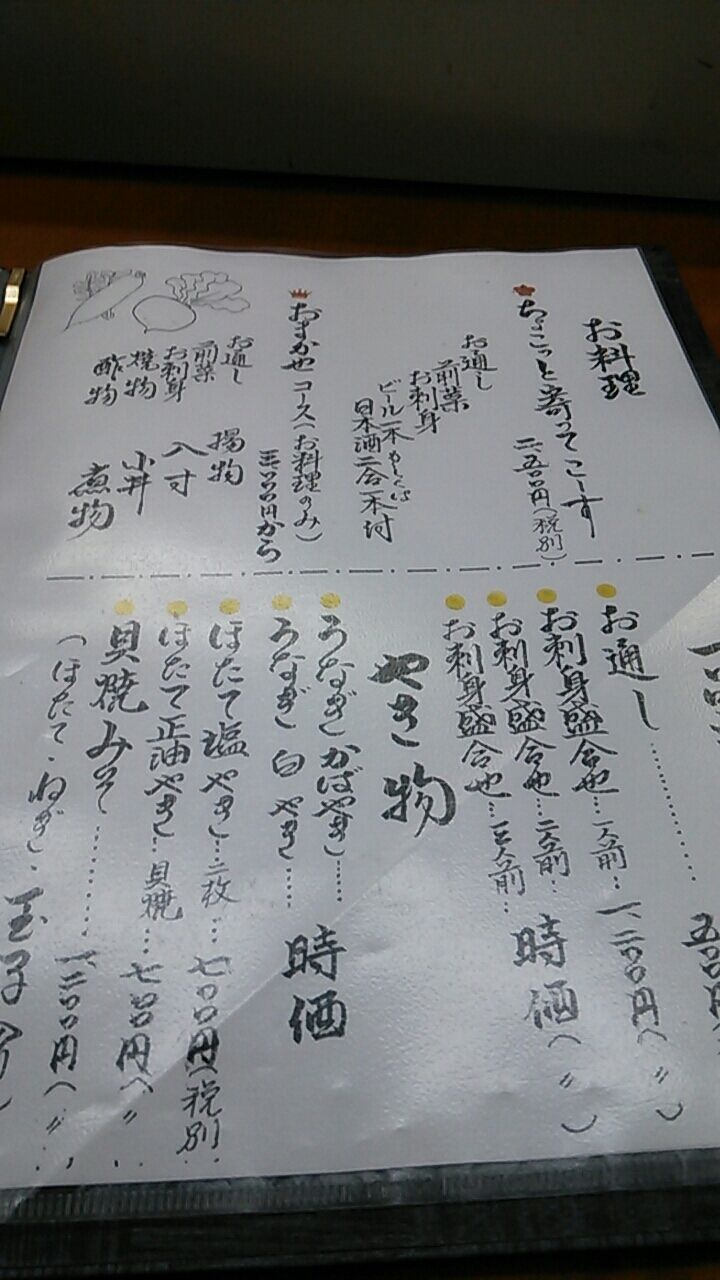 お料理
ちょこっと寄ってこーす
二、五〇〇円(税別)
お通し
前菜
お刺身
ビール一本もしくは
日本酒二合一本付
おまかせコース(お料理のみ)
三、〇〇〇円から
お通し 揚物
前菜 八寸
お刺身 小丼
焼物 煮物
酢物
お通し……五〇〇円
お刺身盛合せ…一人前…一、二〇〇円(〃)
お刺身盛合せ…二人前…時価(〃)
お刺身盛合せ…三人前…
やき物
うなぎかばやき……時価
うなぎ白やき……
ほたて塩やき…二枚…七〇〇円(税別)
ほたて正油やき…貝焼…七〇〇円(〃)
貝焼みそ……一、二〇〇円(〃)
(ほたて・ねぎ・玉子入り)